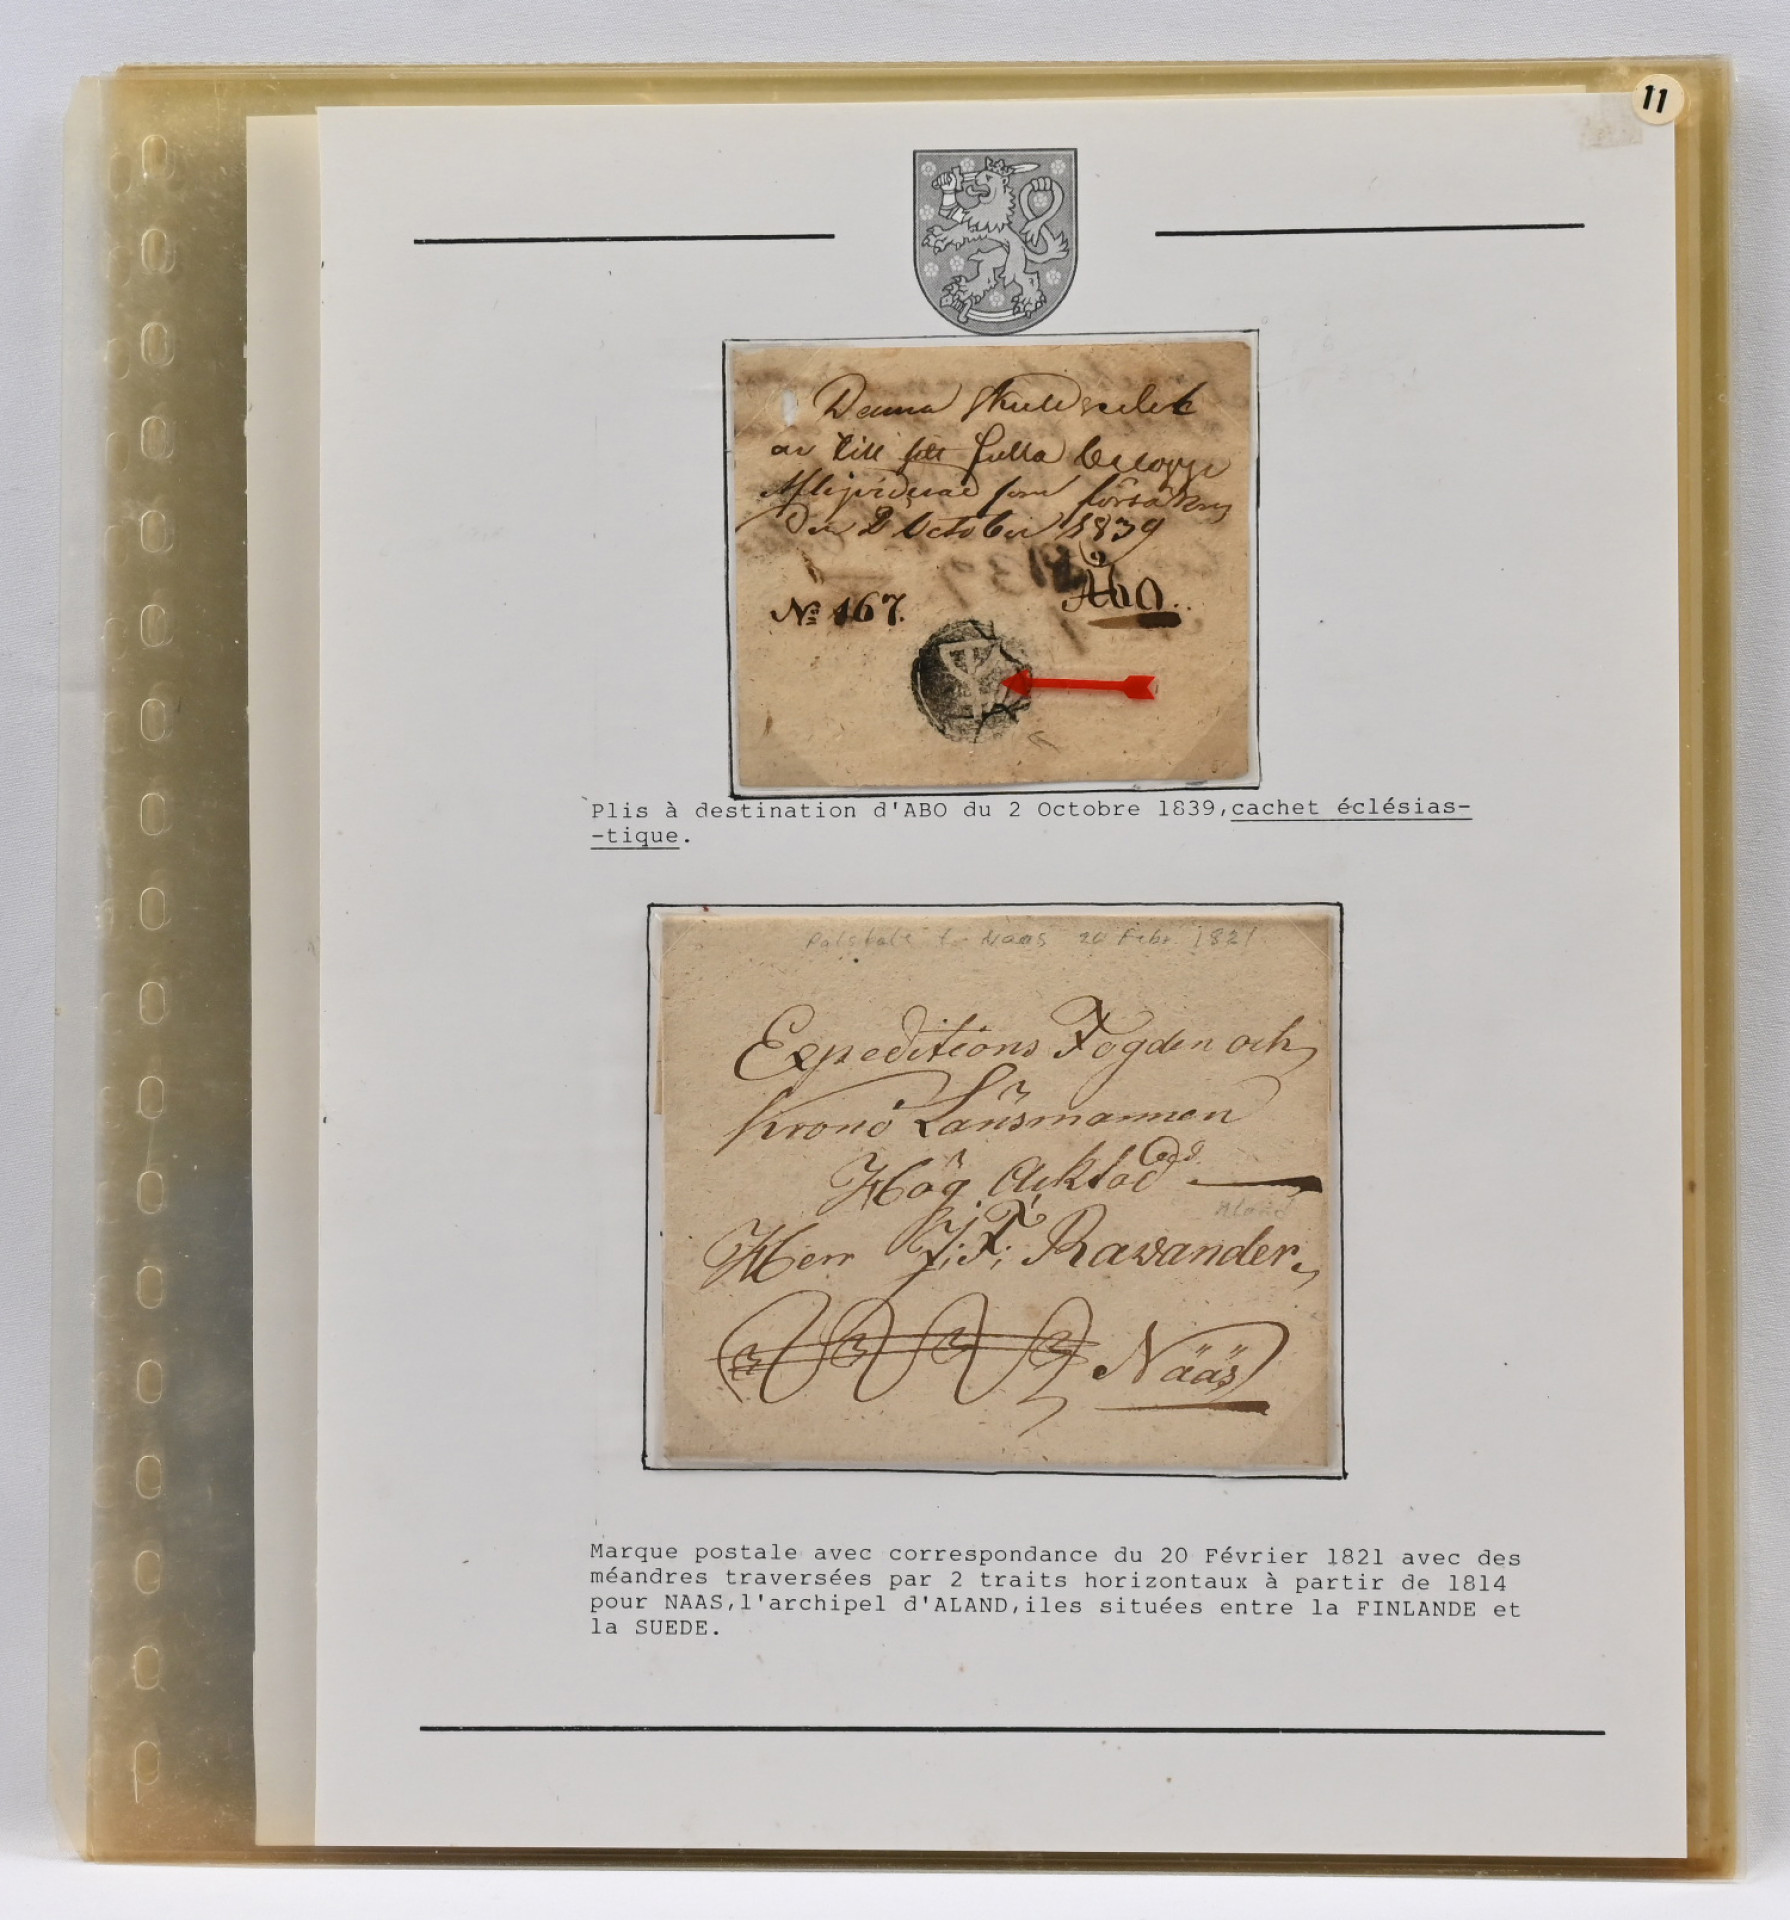 11
Denna
är till fullo
som försäkras
den 2 October 1839
Åbo.
No 167.
Plis à destination d'ABO du 2 Octobre 1839,cachet éclésias-
-tique.
to Naas 20 Febr. 1821
Expeditions Fogden och
Krono Länsmannen
Hög Acktad
Aland
Herr J: F: Rawander,
Nääs
Marque postale avec correspondance du 20 Février 1821 avec des
méandres traversées par 2 traits horizontaux à partir de 1814
pour NAAS,l'archipel d'ALAND,iles situées entre la FINLANDE et
la SUEDE.